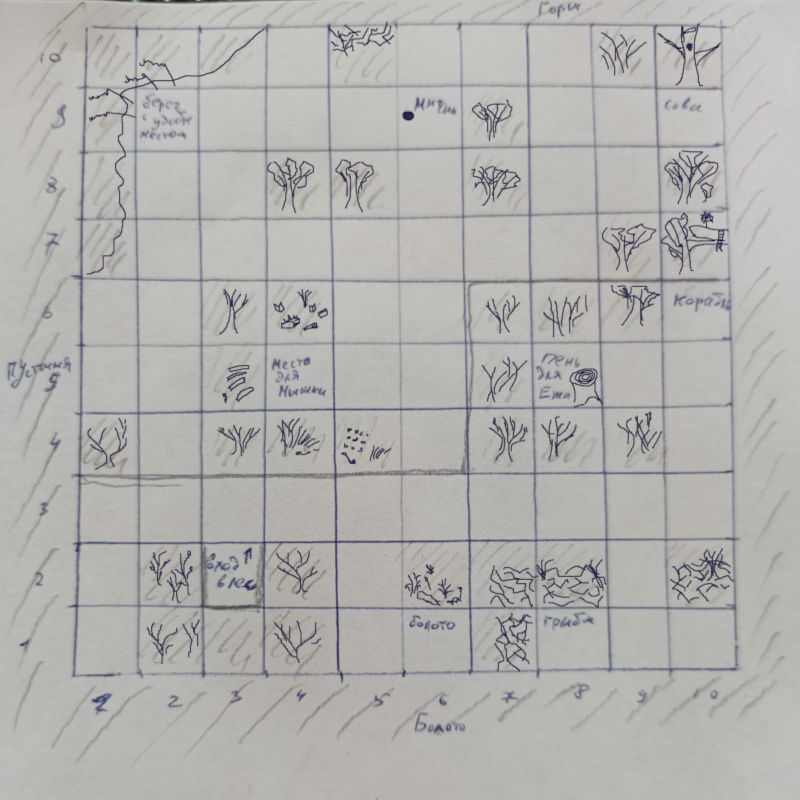 Горы
10
9
берег
с удобн
местом
Мирт
сова
8
7
6
корабль
Пустыня
5
место
для
мышки
пень
для
Ежа
4
3
2
вход ↑
в лес
1
болото
грибы
1 2 3 4 5 6 7 8 9 10
Болото